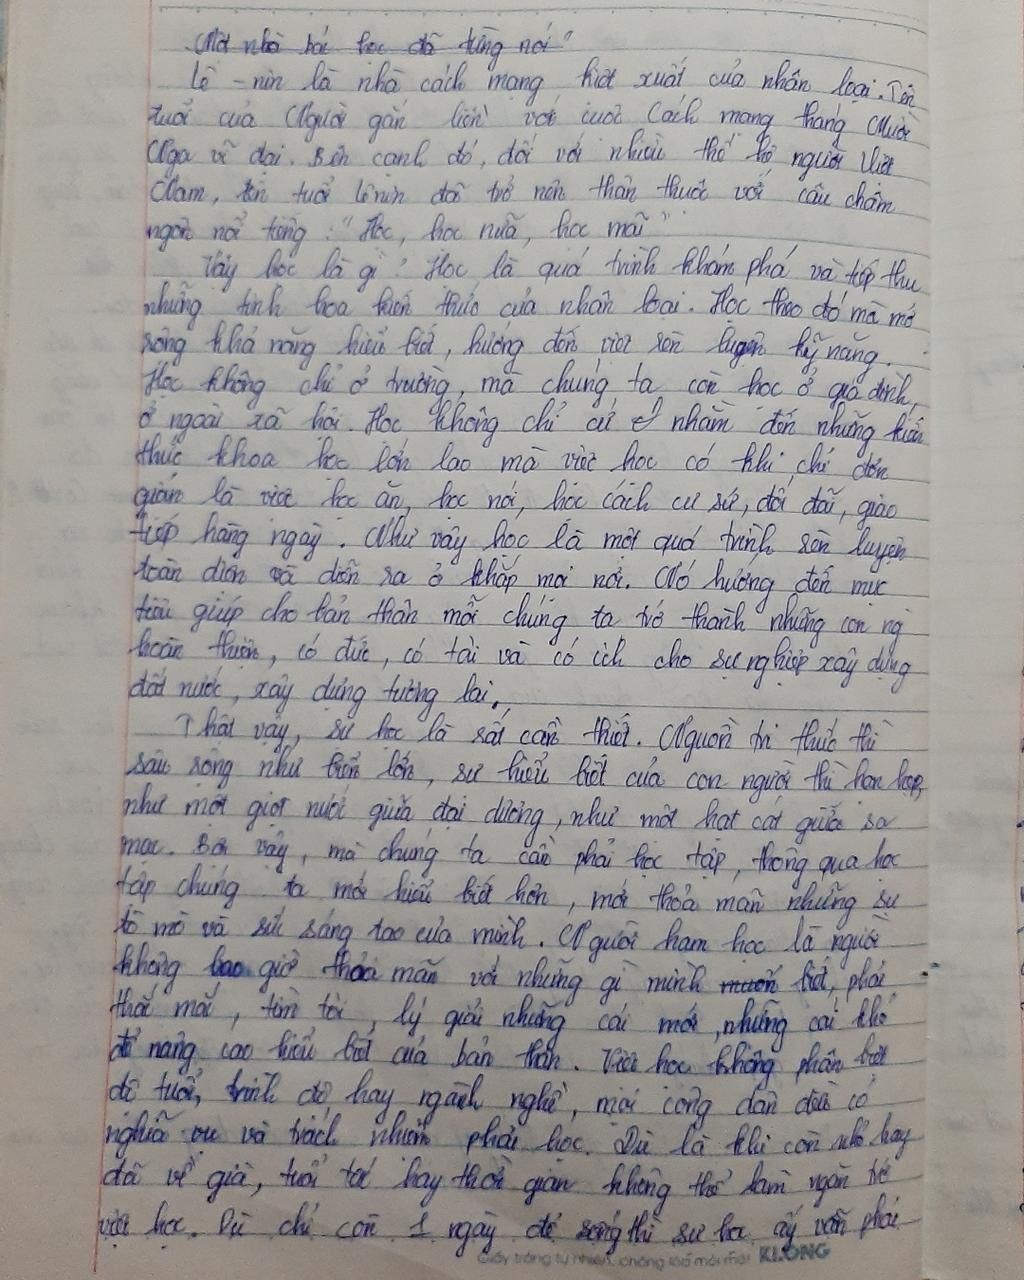 Một nhà bác học đã từng nói "
Lê-nin là nhà cách mạng kiệt xuất của nhân loại. Tên
tuổi của Người gắn liền với cuộc Cách mạng tháng Mười
Nga vĩ đại. Bên cạnh đó, đối với nhiều thế hệ người Việt
Nam, tên tuổi Lênin đã trở nên thân thuộc với câu châm
ngôn nổi tiếng: "Học, học nữa, học mãi"
Vậy học là gì? Học là quá trình khám phá và tiếp thu
những tinh hoa kiến thức của nhân loại. Học theo đó mà mở
rộng khả năng hiểu biết, hướng đến việc rèn luyện kỹ năng.
Học không chỉ ở trường, mà chúng ta còn học ở gia đình,
ở ngoài xã hội. Học không chỉ cứ nhằm đến những kiến
thức khoa học lớn lao mà việc học có khi chỉ đơn
giản là việc học ăn, học nói, học cách cư sử, đối đãi, giao
tiếp hàng ngày. Như vậy học là một quá trình rèn luyện
toàn diện và diễn ra ở khắp mọi nơi. Nó hướng đến mục
tiêu giúp cho bản thân mỗi chúng ta trở thành những con ng
hoàn thiện, có đức, có tài và có ích cho sự nghiệp xây dựng
đất nước, xây dựng tương lai.
Thật vậy, sự học là rất cần thiết. Nguồn tri thức thì
sâu rộng như biển lớn, sự hiểu biết của con người thì hạn hẹp,
như một giọt nước giữa đại dương, như một hạt cát giữa sa
mạc. Bởi vậy, mà chúng ta cần phải học tập, thông qua học
tập chúng ta mới hiểu biết hơn, mới thỏa mãn những sự
tò mò và sức sáng tạo của mình. Người ham học là người
không bao giờ thỏa mãn với những gì mình muốn biết, phải
thắc mắc, tìm tòi, lý giải những cái mới, những cái khó
để nâng cao hiểu biết của bản thân. Việc học không phân biệt
độ tuổi, trình độ hay ngành nghề, mọi công dân đều có
nghĩa vụ và trách nhiệm phải học. Dù là khi còn nhỏ hay
đã về già, tuổi tác hay thời gian không thể làm ngăn trở
việc học. Dù chỉ còn 1 ngày để sống thì sự học ấy vẫn phải
Giấy trắng tự nhiên, chống lóa mỏi mắt KLONG